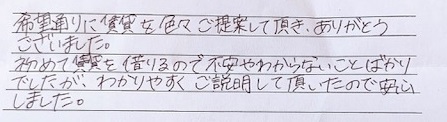 希望通りに賃貸を色々ご提案して頂き、ありがとう
ございました。
初めて賃貸を借りるので不安やわからないことばかり
でしたが、わかりやすくご説明して頂いたので安心
しました。